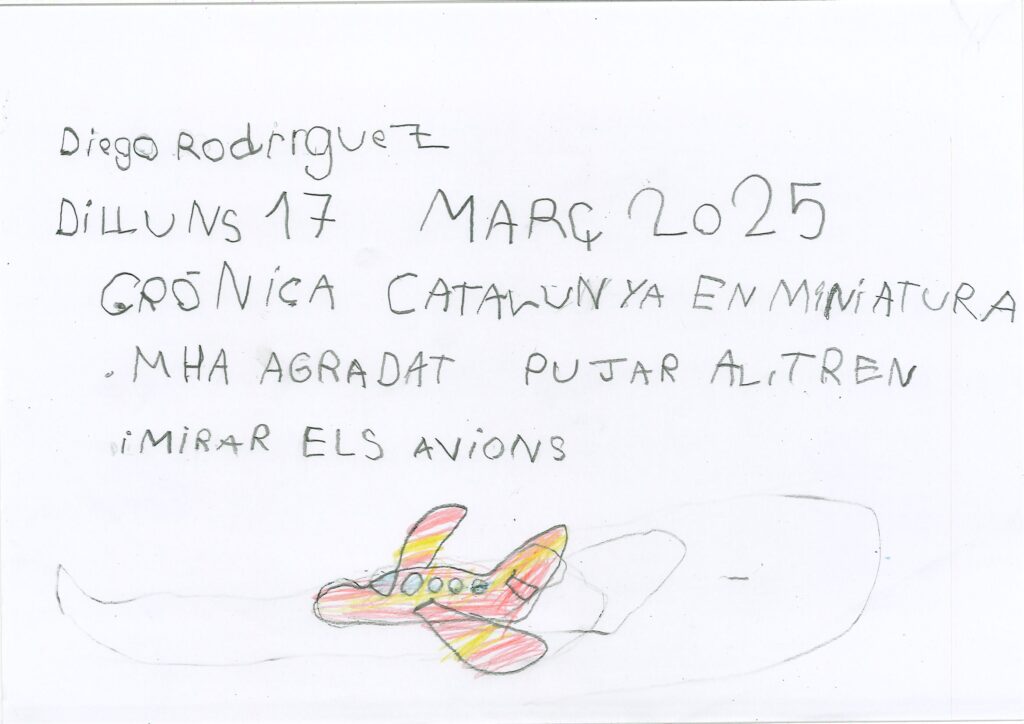 Diego Rodriguez
DILLUNS 17 MARÇ 2025
CRÒNICA CATALUNYA EN MINIATURA
. MHA AGRADAT PUJAR AL TREN
i MIRAR ELS AVIONS